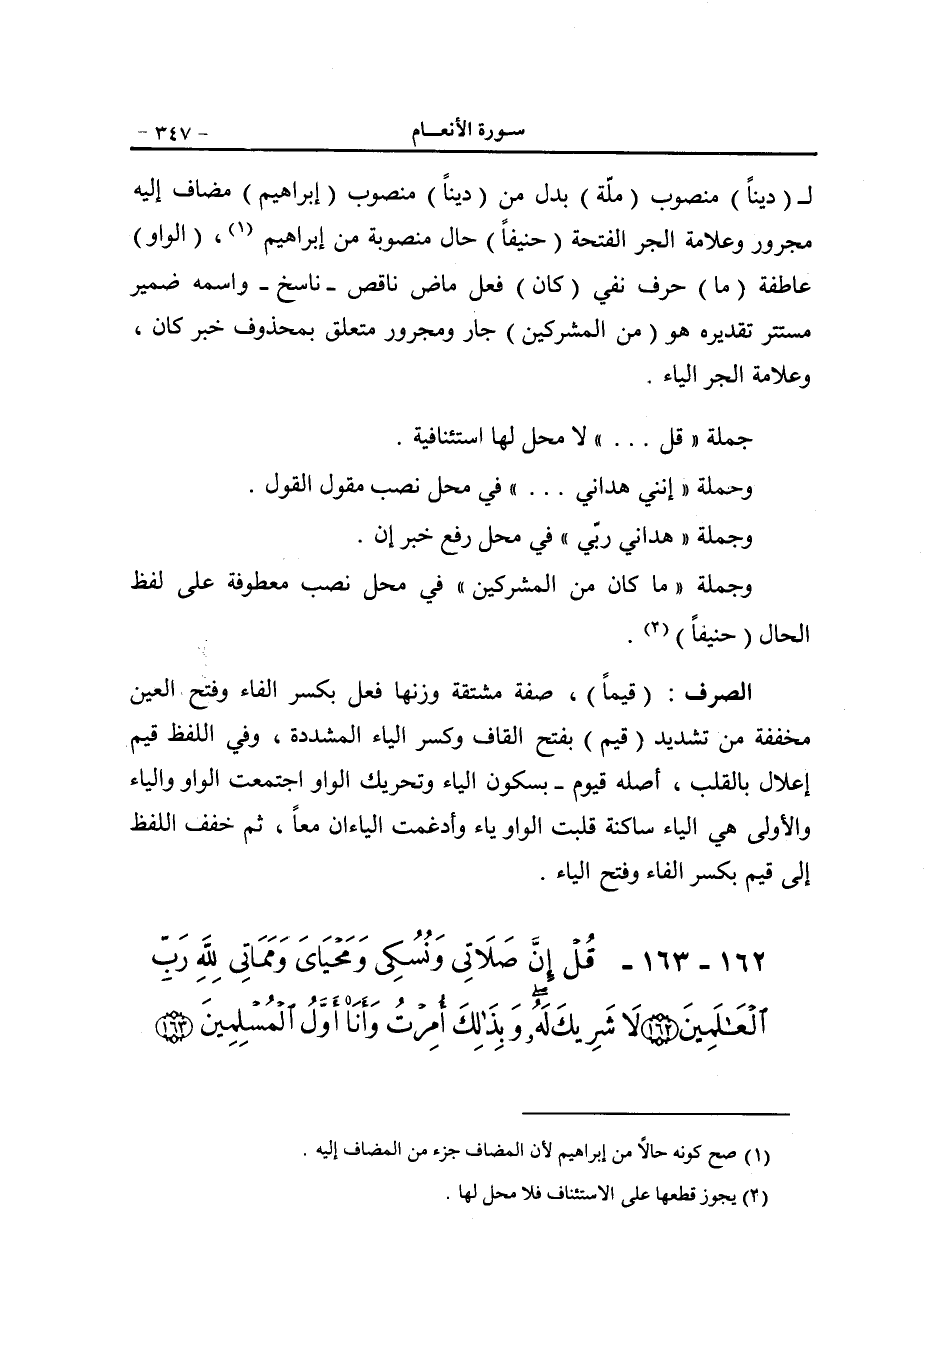 سورة الأنعام - ٣٤٧ -
لـ ( ديناً ) منصوب ( ملّة ) بدل من ( ديناً ) منصوب ( إبراهيم ) مضاف إليه
مجرور وعلامة الجر الفتحة ( حنيفاً ) حال منصوبة من إبراهيم (١) ، ( الواو )
عاطفة ( ما ) حرف نفي ( كان ) فعل ماض ناقص ـ ناسخ ـ واسمه ضمير
مستتر تقديره هو ( من المشركين ) جار ومجرور متعلق بمحذوف خبر كان ،
وعلامة الجر الياء .
جملة « قل . . . » لا محل لها استئنافية .
وجملة « إنني هداني . . . » في محل نصب مقول القول .
وجملة « هداني ربّي » في محل رفع خبر إن .
وجملة « ما كان من المشركين » في محل نصب معطوفة على لفظ
الحال ( حنيفاً ) (٢) .
الصرف : ( قيماً ) ، صفة مشتقة وزنها فعل بكسر الفاء وفتح العين
مخففة من تشديد ( قيم ) بفتح القاف وكسر الياء المشددة ، وفي اللفظ قيم
إعلال بالقلب ، أصله قيوم ـ بسكون الياء وتحريك الواو اجتمعت الواو والياء
والأولى هي الياء ساكنة قلبت الواو ياء وأدغمت الياءان معاً ، ثم خفف اللفظ
إلى قيم بكسر الفاء وفتح الياء .
١٦٢ - ١٦٣ - قُلْ إِنَّ صَلَاتِى وَنُسُكِى وَمَحْيَاىَ وَمَمَاتِى لِلَّهِ رَبِّ
ٱلْعَـٰلَمِينَ ۝١٦٢ لَا شَرِيكَ لَهُۥۖ وَبِذَٰلِكَ أُمِرْتُ وَأَنَا۠ أَوَّلُ ٱلْمُسْلِمِينَ ۝١٦٣
(١) صح كونه حالاً من إبراهيم لأن المضاف جزء من المضاف إليه .
(٢) يجوز قطعها على الاستئناف فلا محل لها .